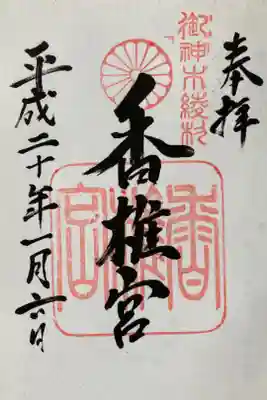 奉拝
御神木綾杉
香椎宮
香椎宮
平成二十年一月六日